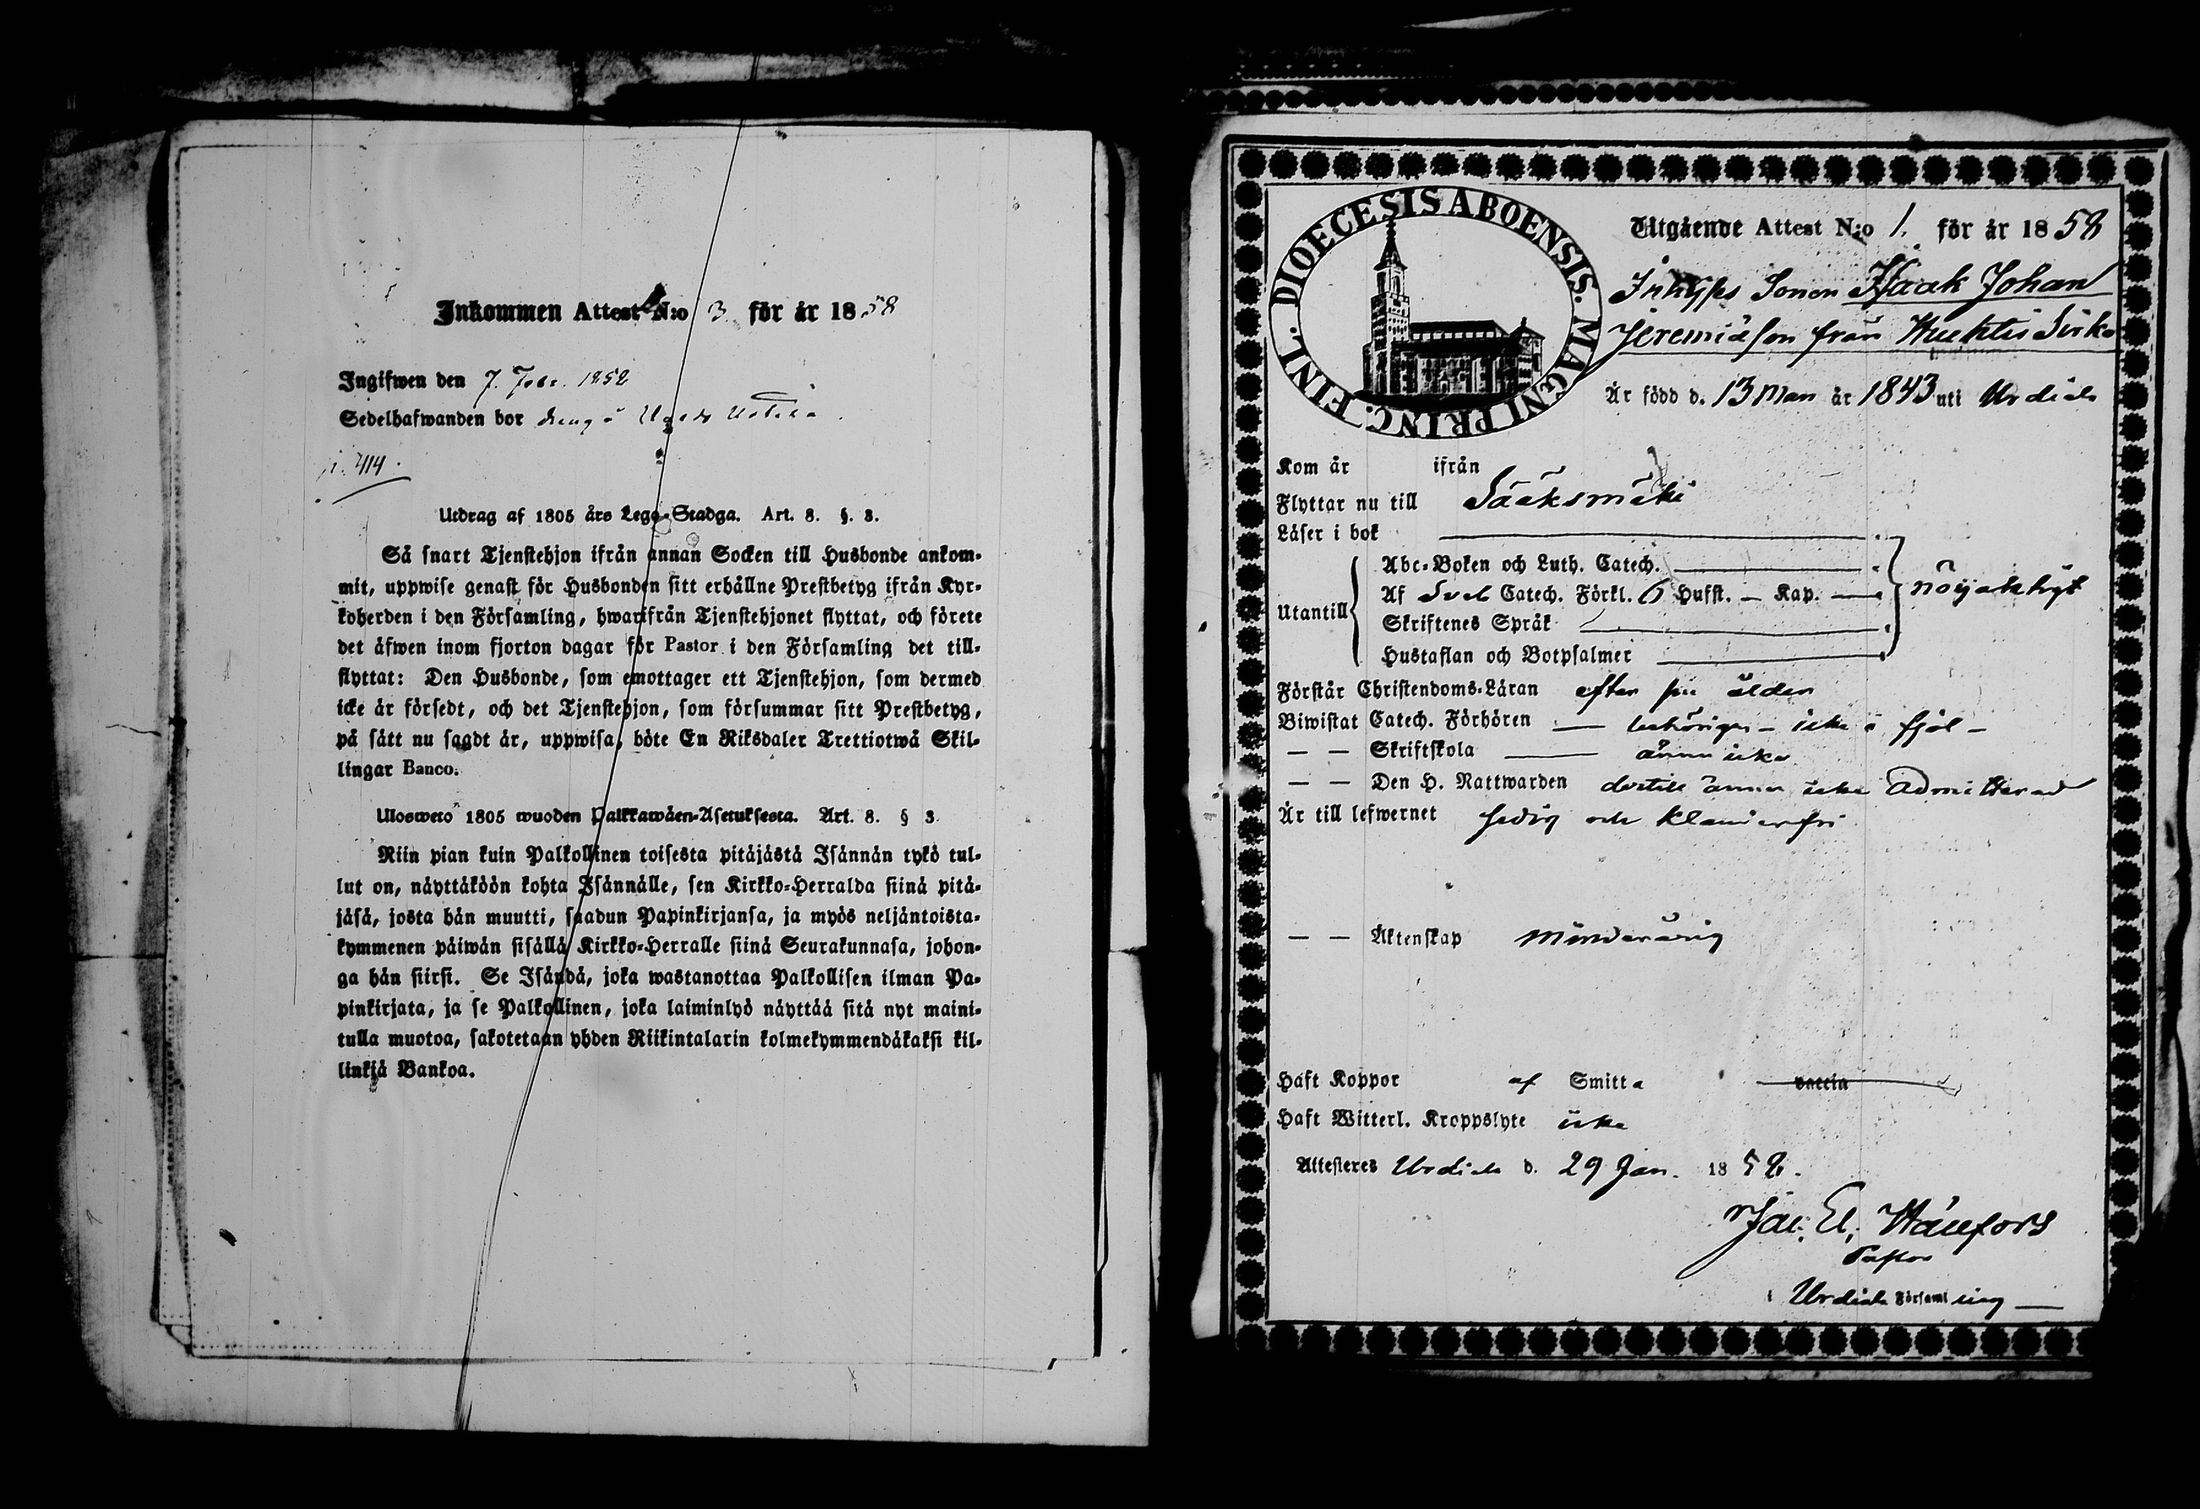 Inkommen Attest N:o 3 för år 1858
Ingifwen den 7. Febr. 1858
Sedelhafwanden bor
p. 414.
Utdrag af 1805 års Lego-Stadga. Art. 8. §. 3.
Så snart Tjenstehjon ifrån annan Socken till Husbonde ankom-
mit, uppwise genast för Husbonden sitt erhållne Prestbetyg ifrån Kyr-
koherden i den Församling, hwarifrån Tjenstehjonet flyttat, och förete
det äfwen inom fjorton dagar för Pastor i den Församling det till-
flyttat: Den Husbonde, som emottager ett Tjenstehjon, som dermed
icke är försedt, och det Tjenstehjon, som försummar sitt Prestbetyg,
på sätt nu sagdt är, uppwisa, böte En Riksdaler Trettiotwå Skil-
lingar Banco.
Ulosweto 1805 wuoden Palkkawäen-Asetuksesta. Art. 8. § 3.
Niin pian kuin Palkollinen toisesta pitäjästä Isännän tykö tul-
lut on, näyttäköön kohta Isännälle, sen Kirkko-Herralda siinä pitä-
jäsä, josta hän muutti, saadun Papinkirjansa, ja myös neljäntoista-
kymmenen päiwän sisällä Kirkko-Herralle siinä Seurakunnasa, johon-
ga hän siirsi. Se Isändä, joka wastanottaa Palkollisen ilman Pa-
pinkirjata, ja se Palkollinen, joka laiminlyö näyttää sitä nyt maini-
tulla muotoa, sakotetaan yhden Riikintalarin kolmekymmendäkaksi kil-
linkjä Bankoa.
DIOECESIS ABOENSIS. MAGNI PRINC. FINL.
Utgående Attest N:o 1. för år 1858
Inhyses Sonen Isaak Johan
Jeremiäson från
Är född d. 13 Mars år 1843 uti Urdiala
Kom år ifrån
Flyttar nu till Sääksmäki
Läser i bok
Abc-Boken och Luth. Catech.
Utantill Af Sveb Catech. Förkl. 6 Hufst. — Kap. — nöijaktigt
Skriftenes Språk
Hustaflan och Botpsalmer
Förstår Christendoms-Läran efter sin ålder
Biwistat Catech. Förhören — behörigen – icke i fjol –
— — Skriftskola — ännu icke
— — Den H. Nattwarden dertill ännu icke Admitterad
Är till lefwernet sedig och klanderfri
— — Äktenskap minderårig
Haft Koppor af Smitta vaccin
Haft Witterl. Kroppslyte icke
Attesteres Urdiala d. 29 Jan. 1858.
Jac. El.
Pastor
i Urdiala Församling —